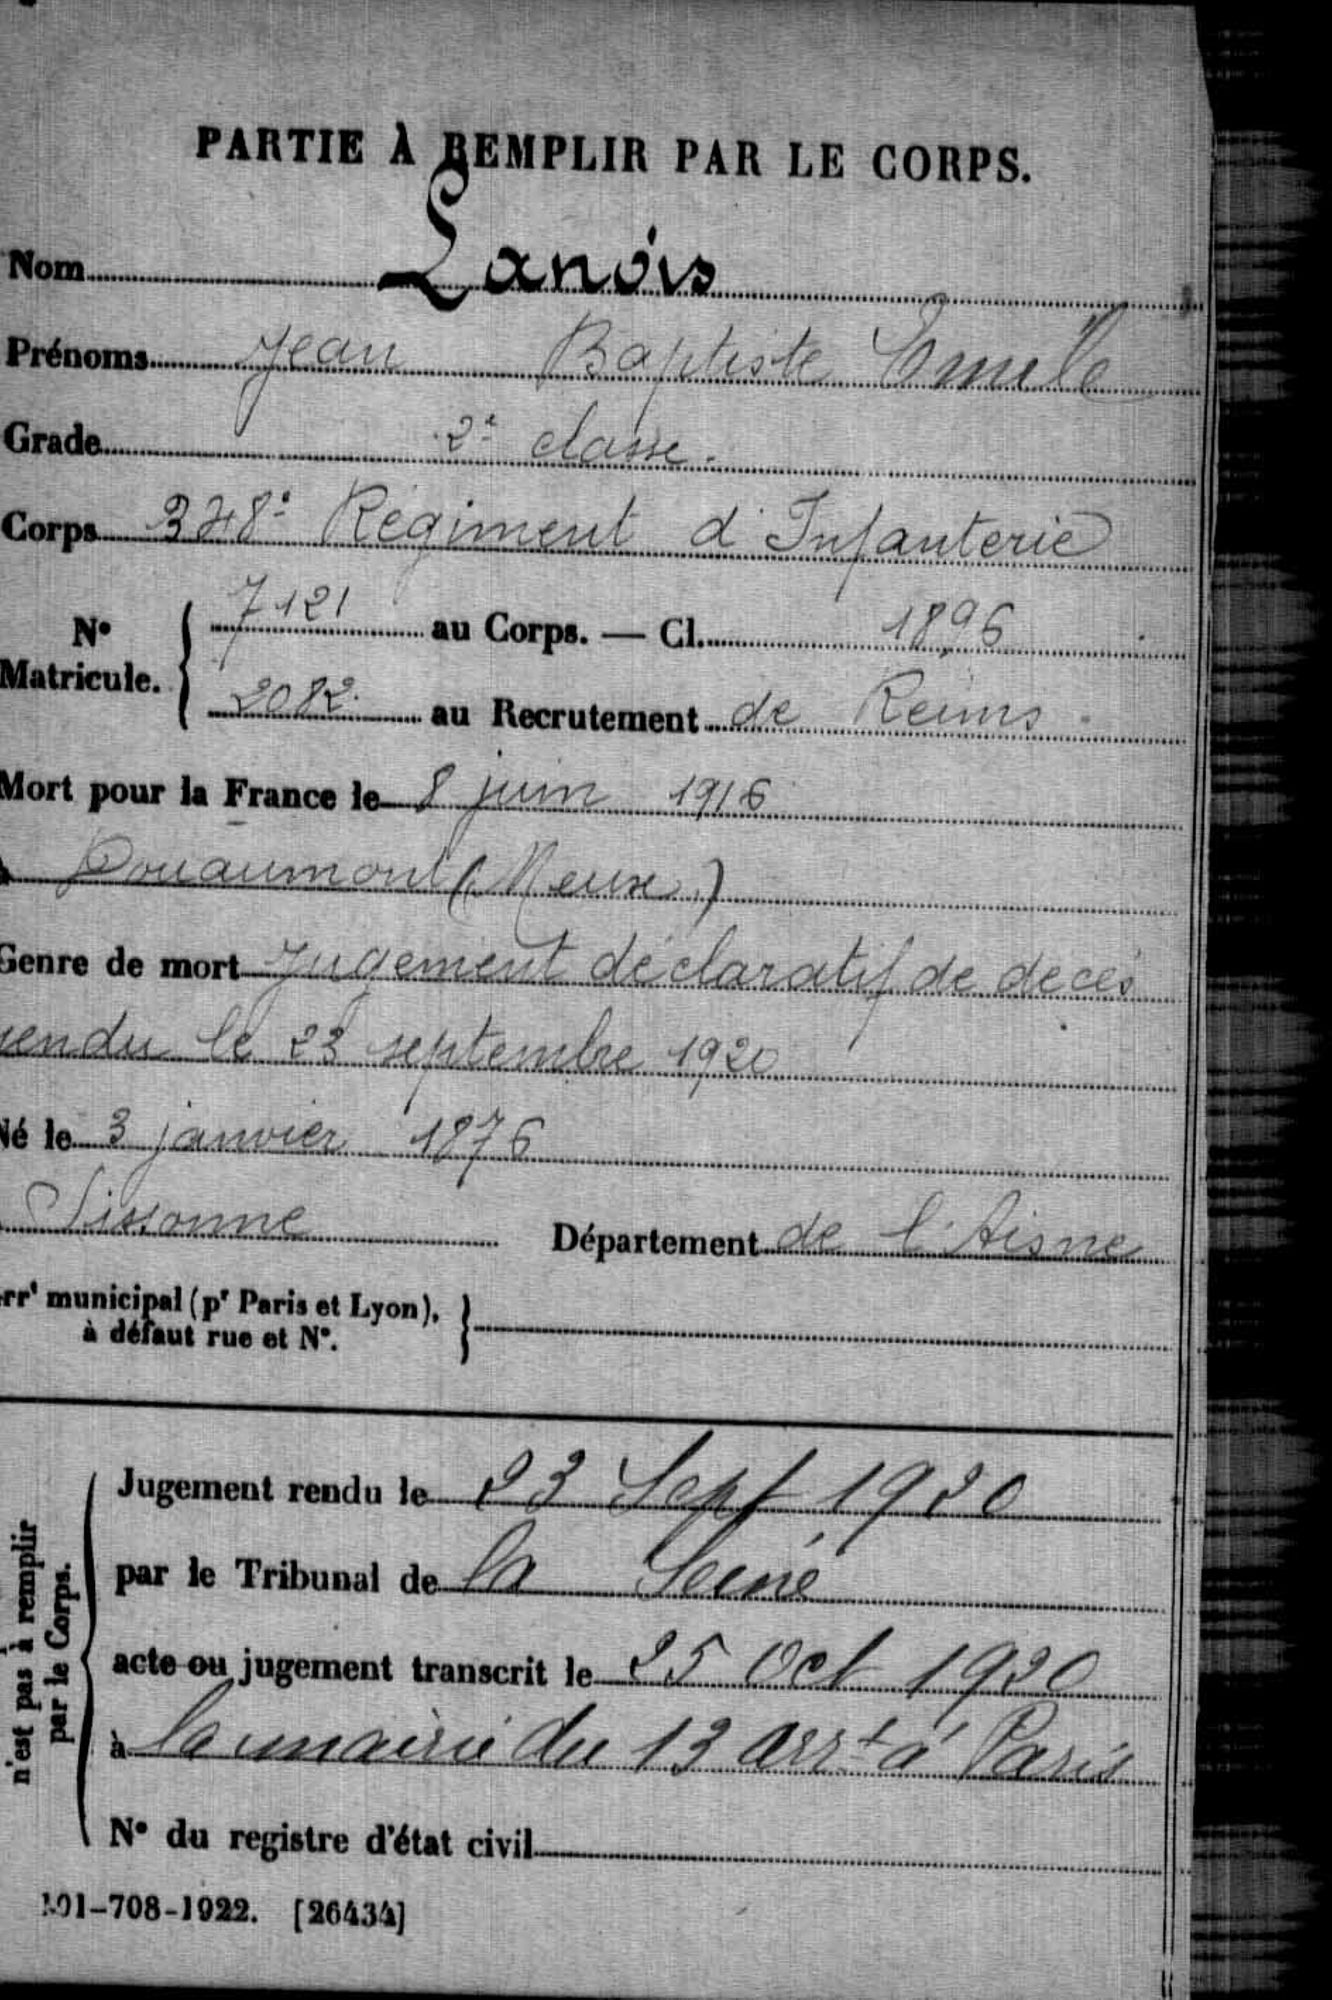 PARTIE À REMPLIR PAR LE CORPS.
Nom Lanois
Prénoms Jean Baptiste Emile
Grade 2e classe.
Corps 348e Régiment d'Infanterie
No Matricule. { 7121 au Corps. — Cl. 1896
2082. au Recrutement de Reims.
Mort pour la France le 8 juin 1916
à Douaumont (Meuse)
Genre de mort Jugement déclaratif de décès
rendu le 23 septembre 1920
Né le 3 janvier 1876
Sissonne Département de l'Aisne
Arrt municipal (pr Paris et Lyon), }
à défaut rue et No.
n'est pas à remplir
par le Corps.
Jugement rendu le 23 Sept 1920
par le Tribunal de la Seine
acte ou jugement transcrit le 25 Oct 1920
à la mairie du 13 arrt à Paris
No du registre d'état civil
101-708-1922. [26434]